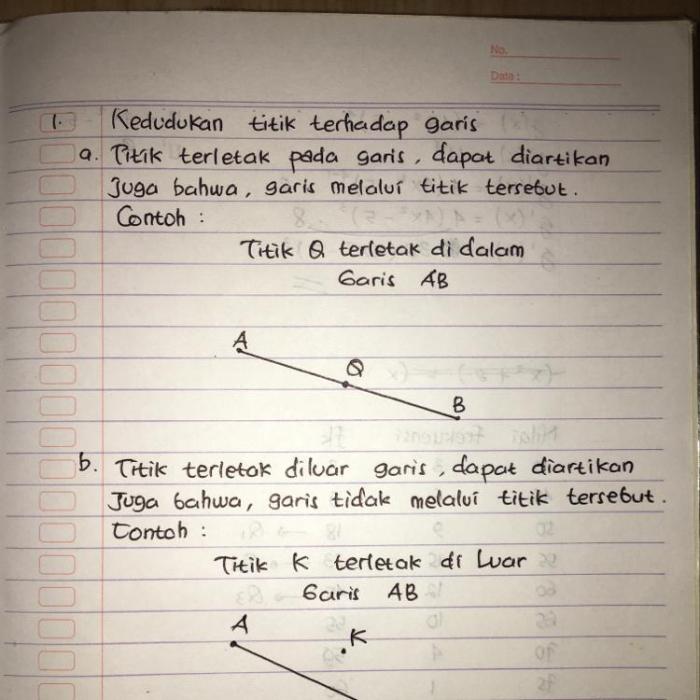 No.
Date :
1. Kedudukan titik terhadap garis
a. Titik terletak pada garis, dapat diartikan
Juga bahwa, garis melalui titik tersebut.
Contoh :
Titik Q terletak di dalam
Garis AB
A
Q
B
b. Titik terletak diluar garis, dapat diartikan
Juga bahwa, garis tidak melalui titik tersebut.
Contoh :
Titik K terletak di Luar
Garis AB
A
K